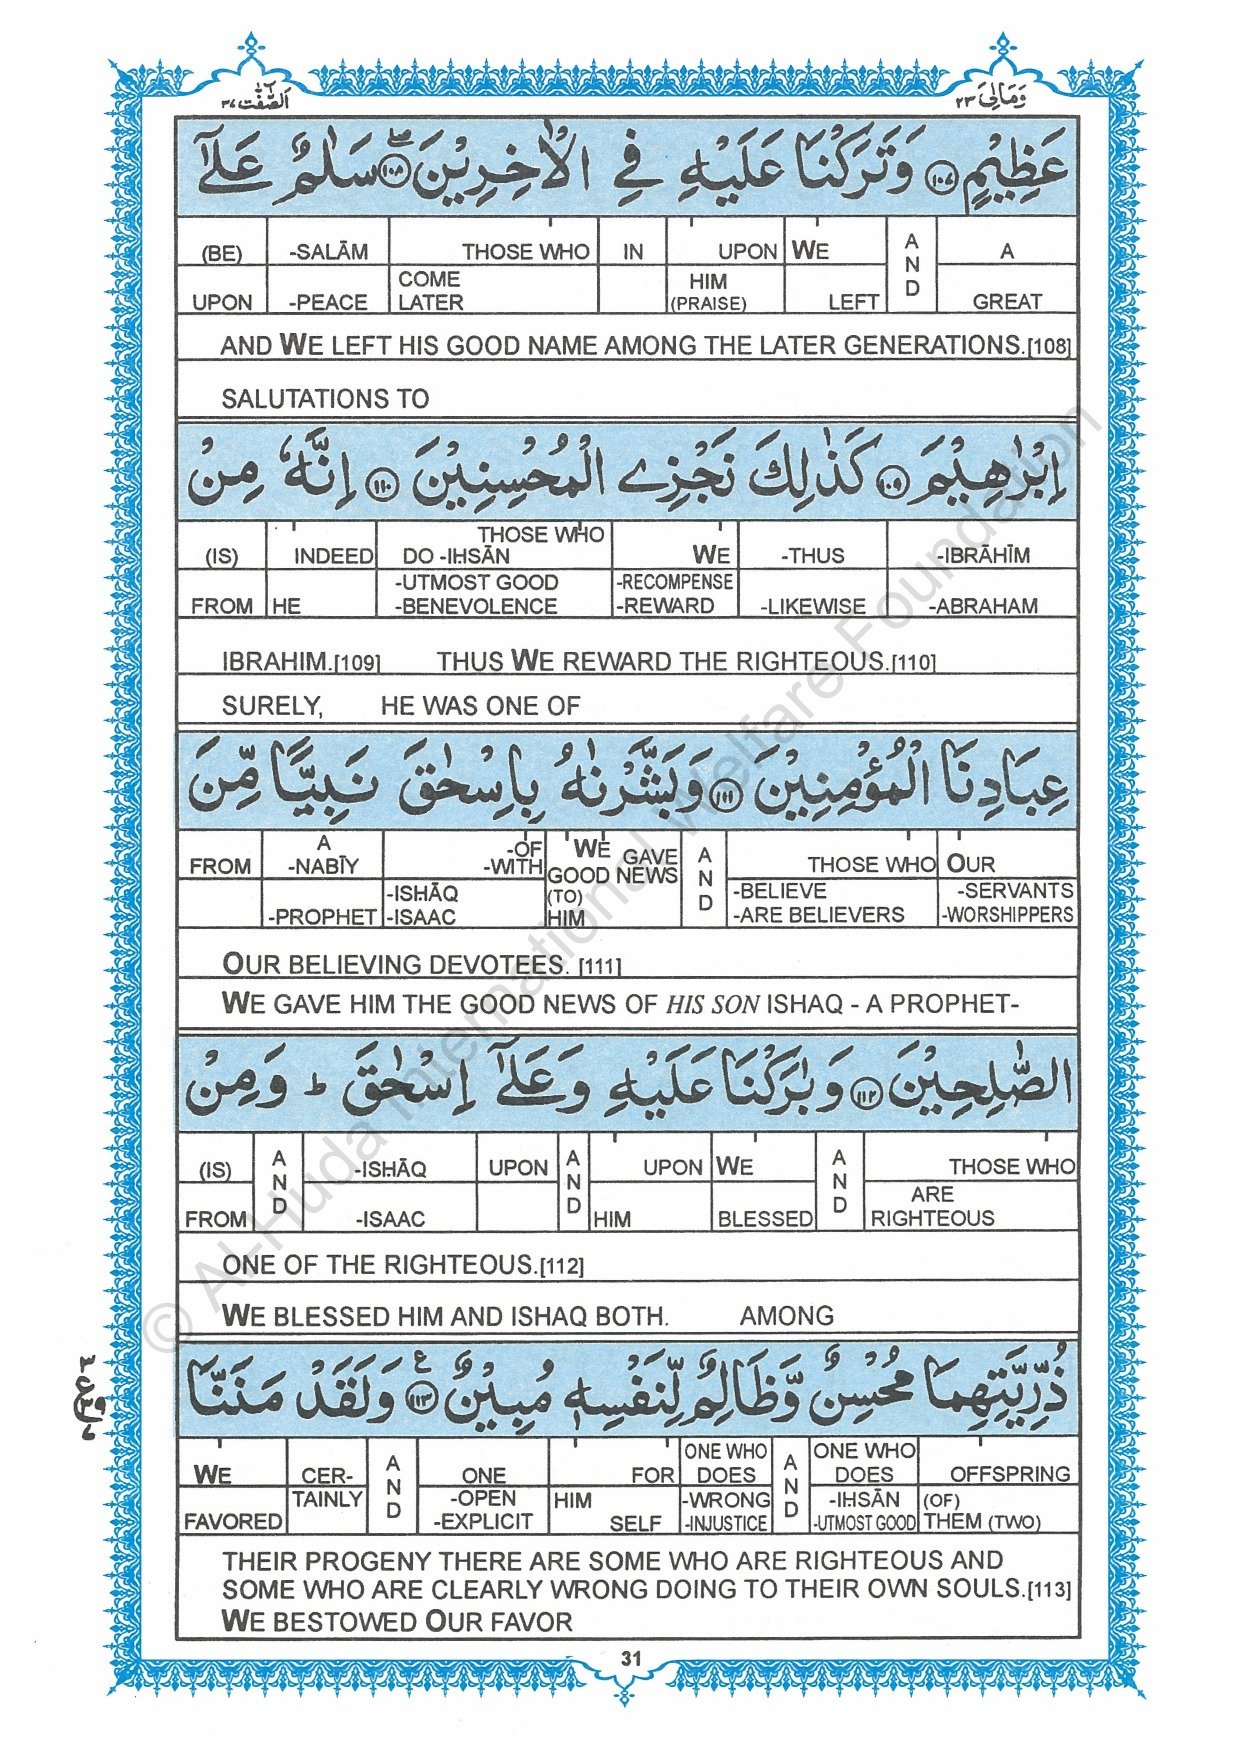 وَمَالِیَ ٢٣
اَلصّٰٓفّٰت ٣٧
عَظِيْمٍ ١٠٧ وَتَرَكْنَا عَلَيْهِ فِي الْاٰخِرِيْنَ ١٠٨ سَلٰمٌ عَلٰٓى
A AND WE UPON IN THOSE WHO -SALĀM (BE)
GREAT LEFT HIM (PRAISE) COME LATER -PEACE UPON
AND WE LEFT HIS GOOD NAME AMONG THE LATER GENERATIONS.[108]
SALUTATIONS TO
اِبْرٰهِيْمَ ١٠٩ كَذٰلِكَ نَجْزِي الْمُحْسِنِيْنَ ١١٠ اِنَّهٗ مِنْ
-IBRĀHĪM -THUS WE THOSE WHO DO -IḤSĀN INDEED (IS)
-ABRAHAM -LIKEWISE -RECOMPENSE -REWARD -UTMOST GOOD -BENEVOLENCE HE FROM
IBRAHIM.[109] THUS WE REWARD THE RIGHTEOUS.[110]
SURELY, HE WAS ONE OF
عِبَادِنَا الْمُؤْمِنِيْنَ ١١١ وَبَشَّرْنٰهُ بِاِسْحٰقَ نَبِيًّا مِّنَ
OUR THOSE WHO AND WE GAVE GOOD NEWS -OF -WITH A -NABĪY FROM
-SERVANTS -WORSHIPPERS -BELIEVE -ARE BELIEVERS (TO) HIM -ISḤĀQ -ISAAC -PROPHET
OUR BELIEVING DEVOTEES. [111]
WE GAVE HIM THE GOOD NEWS OF HIS SON ISHAQ - A PROPHET-
الصّٰلِحِيْنَ ١١٢ وَبٰرَكْنَا عَلَيْهِ وَعَلٰٓى اِسْحٰقَ ط وَمِنْ
THOSE WHO AND WE UPON AND UPON -ISḤĀQ AND (IS)
ARE RIGHTEOUS BLESSED HIM -ISAAC FROM
ONE OF THE RIGHTEOUS.[112]
WE BLESSED HIM AND ISHAQ BOTH. AMONG
ذُرِّيَّتِهِمَا مُحْسِنٌ وَّظَالِمٌ لِّنَفْسِهٖ مُبِيْنٌ ١١٣ ع وَلَقَدْ مَنَنَّا
OFFSPRING ONE WHO DOES AND ONE WHO DOES FOR ONE AND CER- WE
(OF) THEM (TWO) -IḤSĀN -UTMOST GOOD -WRONG -INJUSTICE HIM SELF -OPEN -EXPLICIT TAINLY FAVORED
THEIR PROGENY THERE ARE SOME WHO ARE RIGHTEOUS AND
SOME WHO ARE CLEARLY WRONG DOING TO THEIR OWN SOULS.[113]
WE BESTOWED OUR FAVOR
31
© Al-Huda International Welfare Foundation